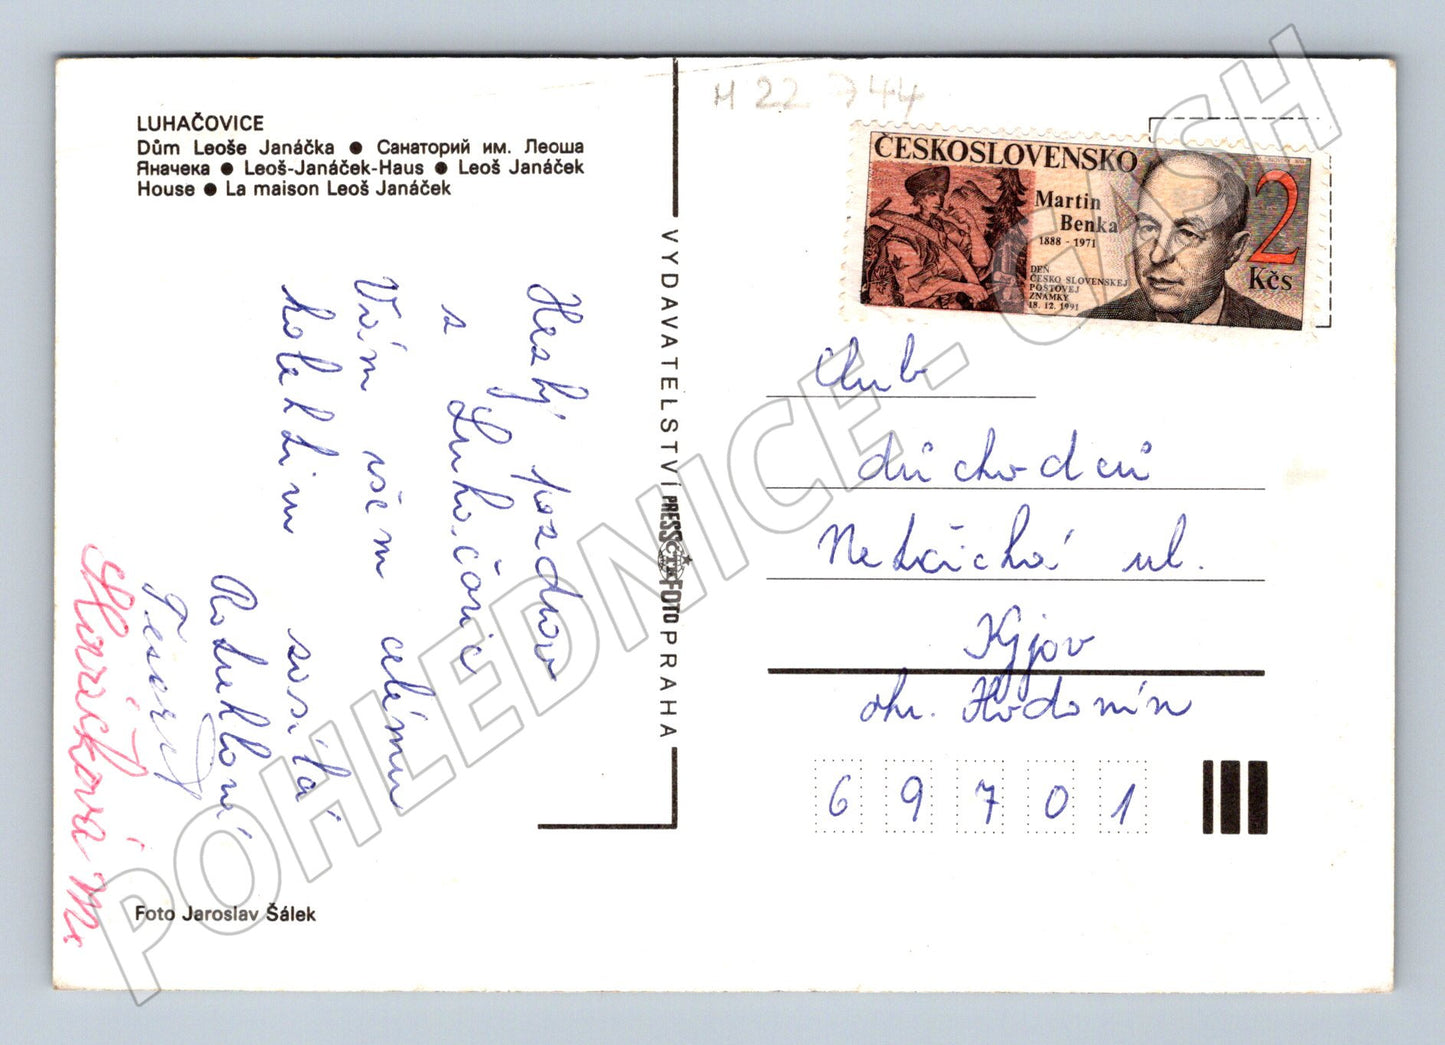 LUHAČOVICE
Dům Leoše Janáčka ● Санаторий им. Леоша
Яначека ● Leoš-Janáček-Haus ● Leoš Janáček
House ● La maison Leoš Janáček
Hezký pozdrav
z Luhačovic
Vám všem celému
kolektivu
Roduklová
Horáčková M.
Foto Jaroslav Šálek
VYDAVATELSTVÍ PRESSFOTO PRAHA
ČTK
M 22 744
ČESKOSLOVENSKO
Martin
Benka
1888 - 1971
DEŇ
ČESKO SLOVENSKEJ
POŠTOVEJ
ZNÁMKY
18. 12. 1991
2
Kčs
Club
důchodců
Netčická ul.
Kyjov
okr. Hodonín
69701
POHLEDNICE - CASH